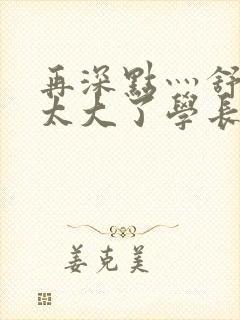 再深點灬舒
太大了學長
姜克美